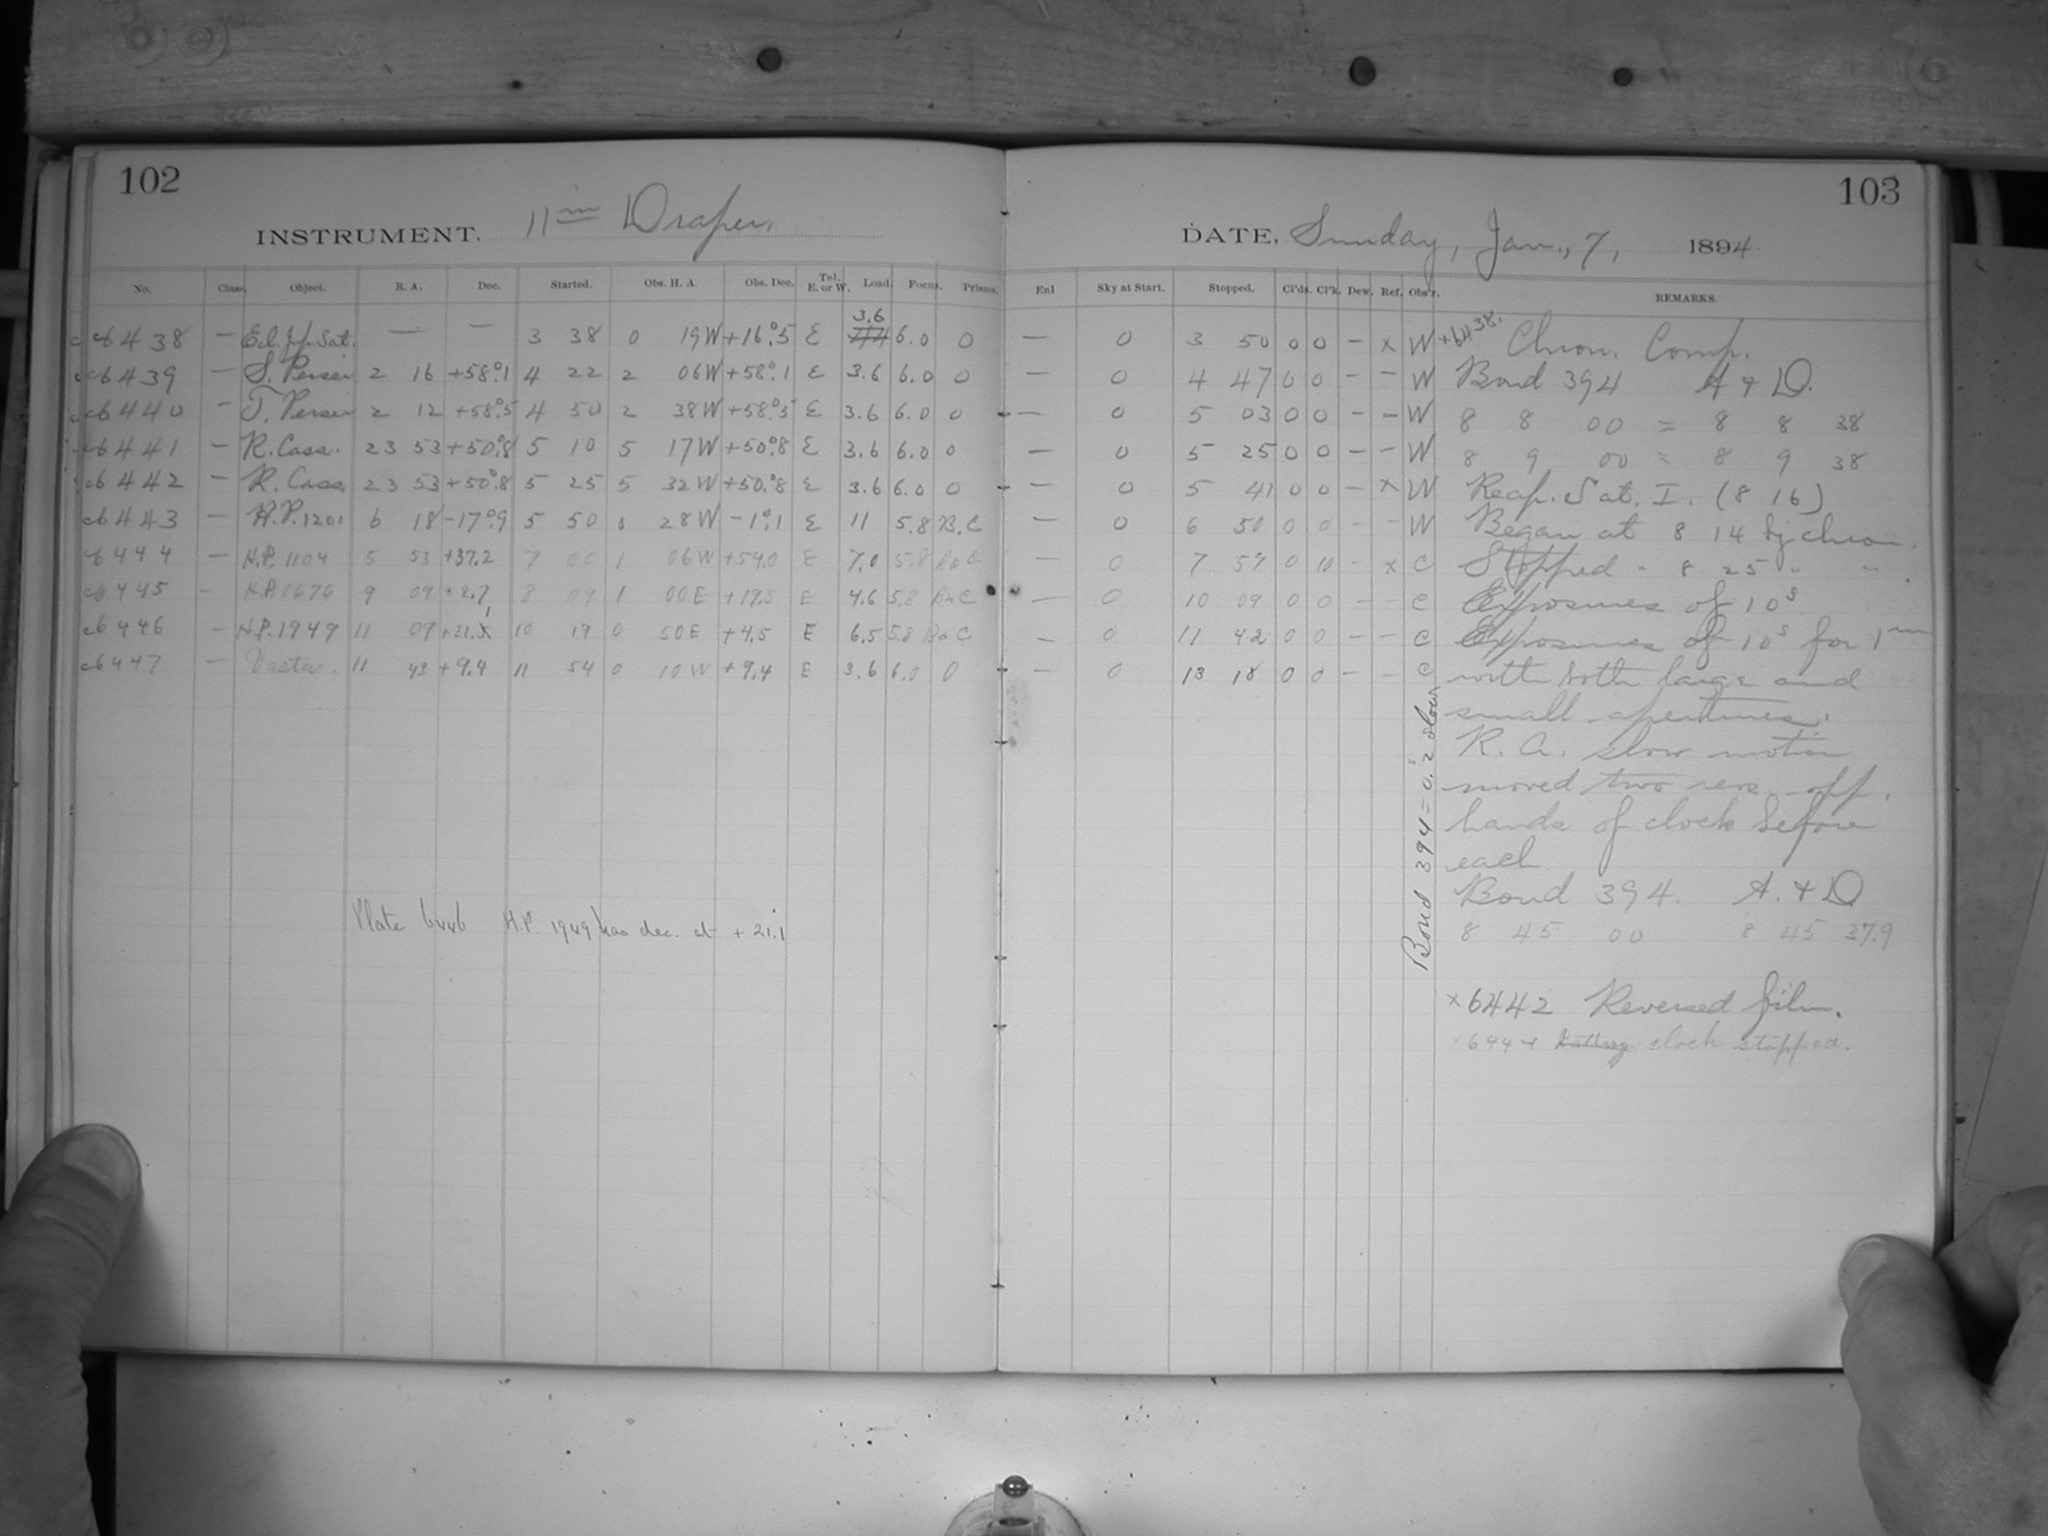 102
INSTRUMENT. 11 in Draper.
No. Class. Object. R. A. Dec. Started. Obs. H. A. Obs. Dec. Tel. E. or W. Load. Focus. Prisms.
6438 — Ecl. Jup. Sat. — — 3 38 0 19W +16°.5 E 3.6 6.0 0
6439 — S. Persei 2 16 +58°.1 4 22 2 06W +58°.1 E 3.6 6.0 0
6440 — T. Persei 2 12 +58°.5 4 50 2 38W +58°.5 E 3.6 6.0 0
6441 — R. Cass. 23 53 +50°.8 5 10 5 17W +50°.8 E 3.6 6.0 0
6442 — R. Cass. 23 53 +50°.8 5 25 5 32W +50°.8 E 3.6 6.0 0
6443 — H.P. 1201 6 18 -17°.9 5 50 28W -1°.1 E 11 5.8 B.C
6444 — H.P. 1104 5 53 +37.2 7 00 1 06W +54.0 E 7.0 5.8 B&C
6445 — H.P. 1676 9 09 +2.7 8 09 1 00E +19.5 E 4.6 5.8 B&C
6446 — H.P. 1949 11 09 +21.1 10 19 0 50E +4.5 E 6.5 5.8 B&C
6447 — Vesta. 11 43 +9.4 11 54 0 10W +9.4 E 3.6 6.0 0
Plate 6446 H.P. 1949 has dec. at +21.1
103
DATE, Sunday, Jan., 7, 1894.
Enl Sky at Start. Stopped. Cl'ds. Cl'k. Dew. Ref. Obs'r. REMARKS.
— 0 3 50 0 0 — x W
— 0 4 47 0 0 — — W
— 0 5 03 0 0 — — W
— 0 5 25 0 0 — — W
— 0 5 41 0 0 — x W
— 0 6 50 0 0 — — W
— 0 7 59 0 10 — x C
— 0 10 09 0 0 — — C
— 0 11 42 0 0 — — C
— 0 13 18 0 0 — — C
x6438. Chron. Comp.
Bond 394 A & D.
8 8 00 = 8 8 38
8 9 00 = 8 9 38
Reap. Sat. I. (8 16)
Began at 8 14 by chron.
Stopped " 8 25 " " .
Exposures of 10s
Exposures of 10s for 1m
with both large and
small apertures.
R. A. slow motion
moved two revs. off.
hands of clock before
each
Bond 394. A. & D
8 45 00 8 45 37.9
x6442 Reversed film.
x6444 Battery clock stopped.
Bond 394 = 0.2s slow